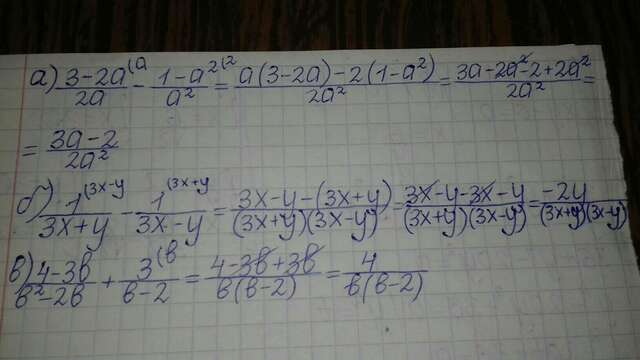 а) (3-2a)/(2a) (a - (1-a²)/(a²) (2 = (a(3-2a)-2(1-a²))/(2a²) = (3a-2a²-2+2a²)/(2a²) =
= (3a-2)/(2a²)
б) 1/(3x+y) (3x-y - 1/(3x-y) (3x+y = (3x-y-(3x+y))/((3x+y)(3x-y)) = (3x-y-3x-y)/((3x+y)(3x-y)) = (-2y)/((3x+y)(3x-y))
в) (4-3в)/(в²-2в) + 3/(в-2) (в = (4-3в+3в)/(в(в-2)) = 4/(в(в-2))